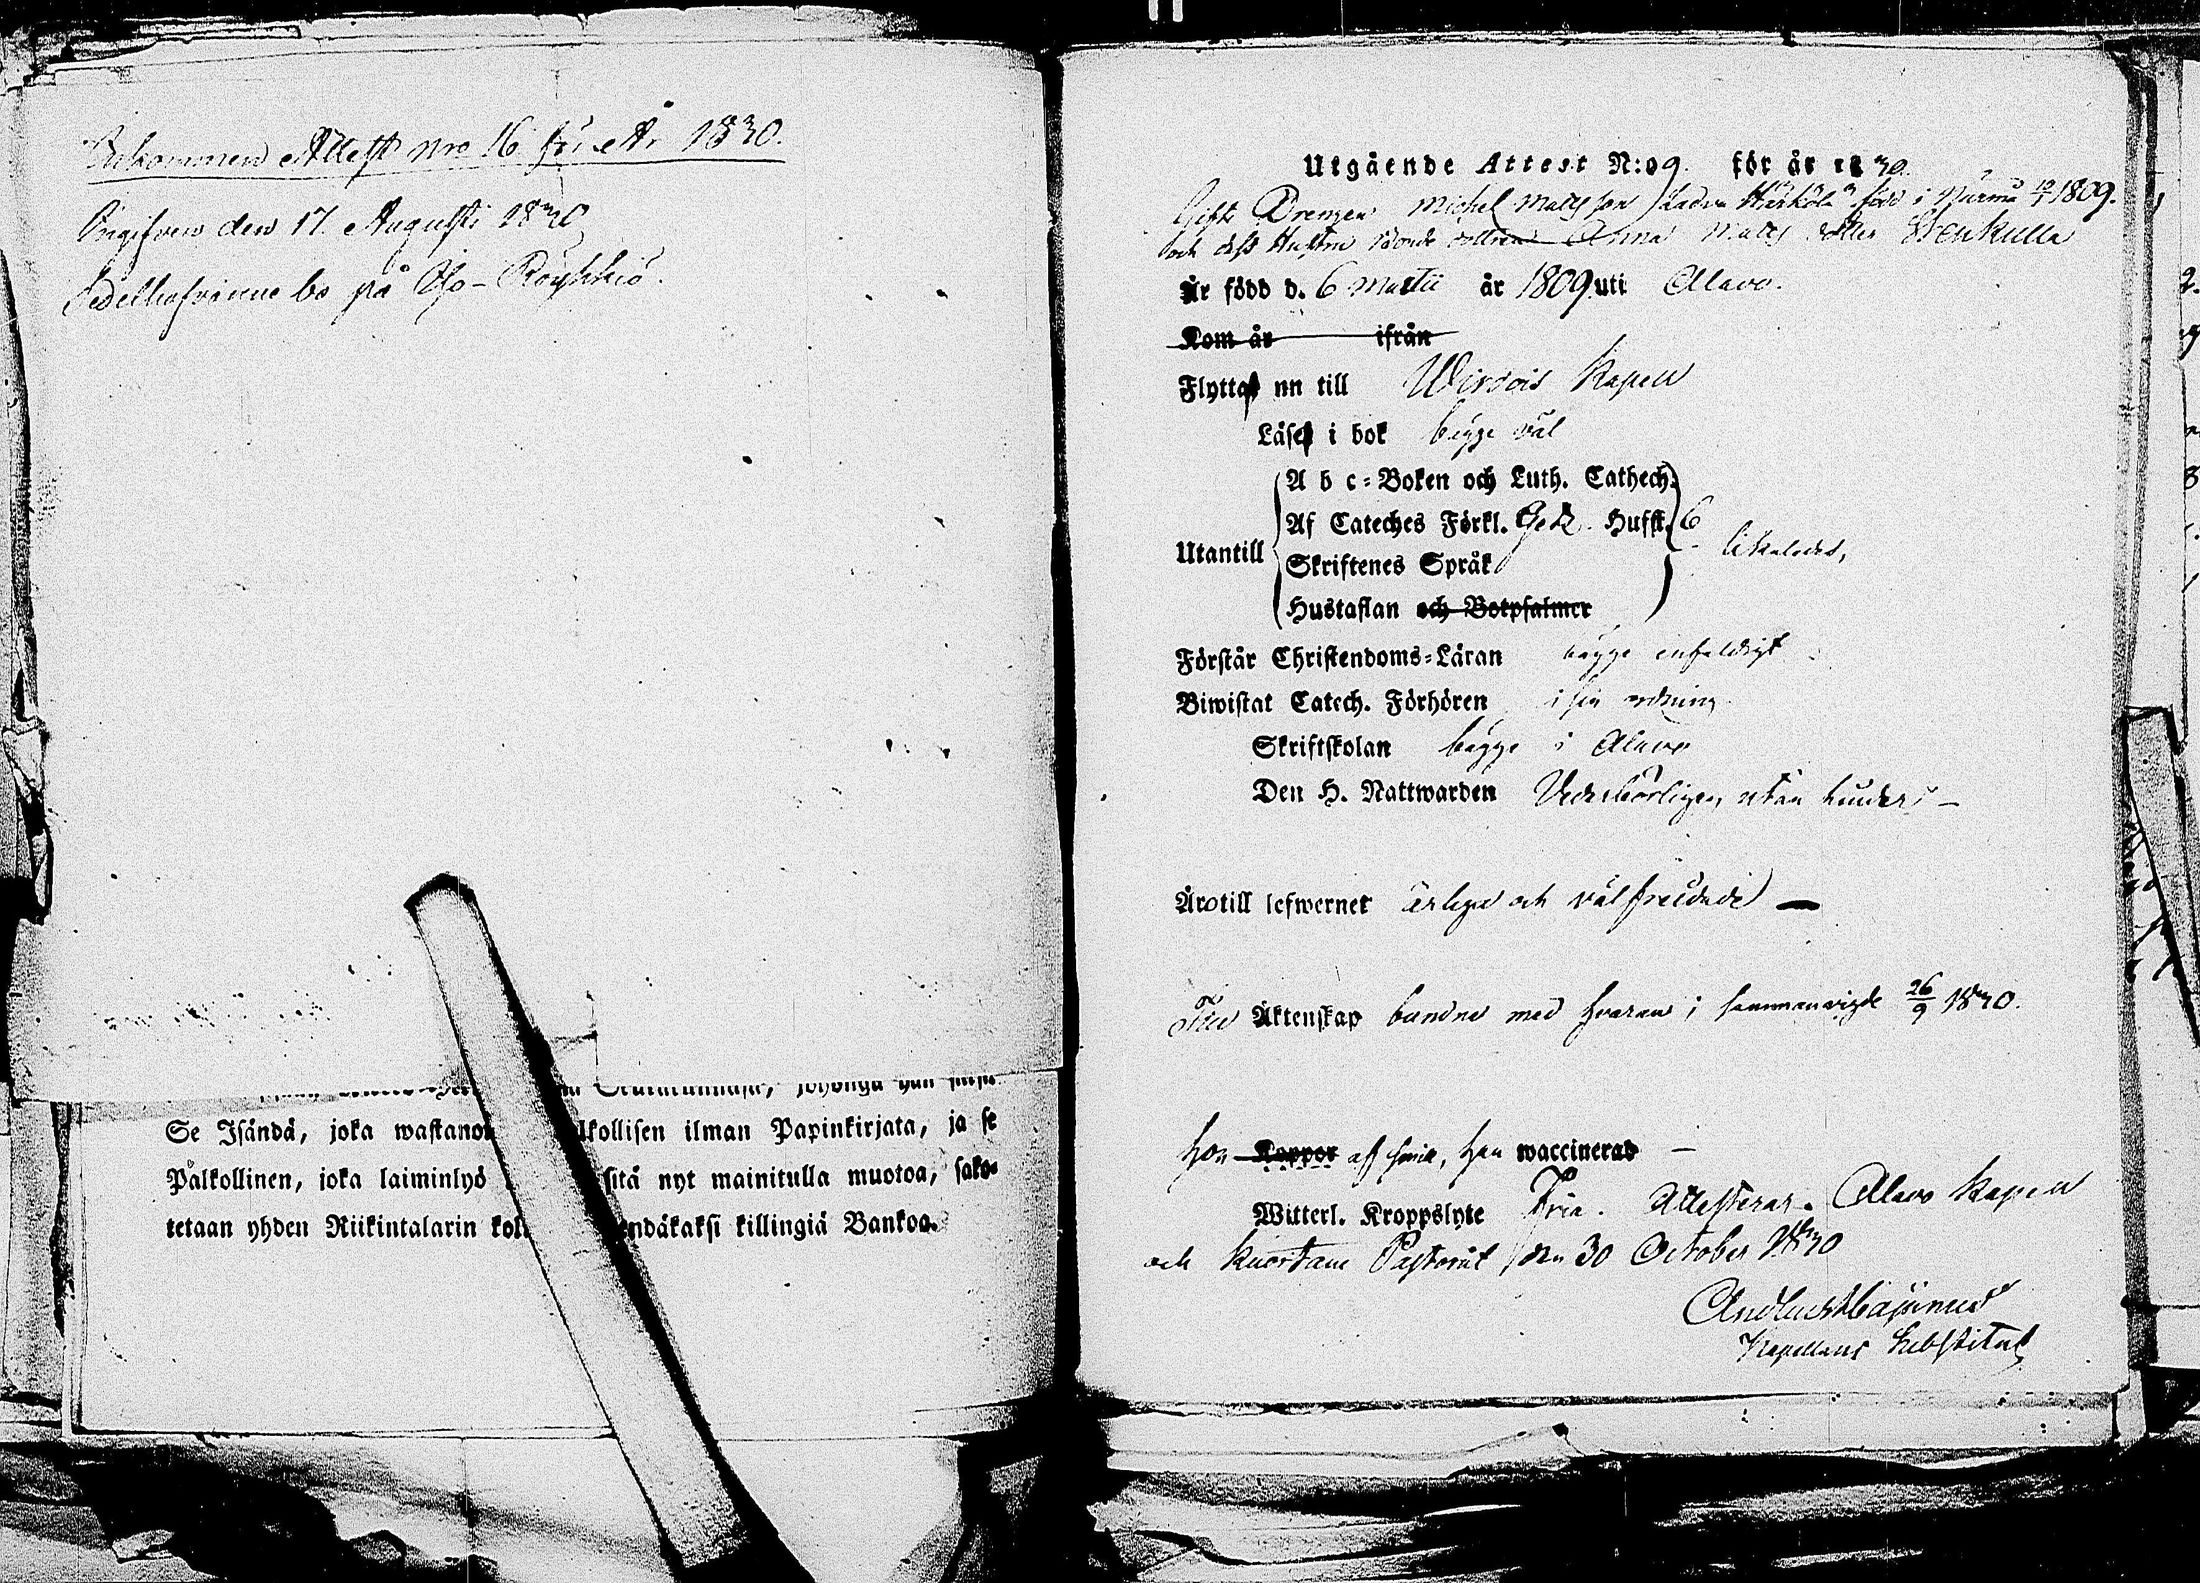 Inkommen Attest nro 16 för År 1830.
Ingifven den 17 Augusti 1830
Sedelhafvarene bo på Yso-Röyhkiö.
Se Isändä, joka wastanot kollisen ilman Papinkirjata, ja se
Palkollinen, joka laiminlyö sitä nyt mainitulla muotoa, sako-
tetaan yhden Riikintalarin ndäkaksi killingiä Bankoa.
Utgående Attest N:o 9. för år 1830.
Gifte Drengen Michel Mattsson född i 1809.
och dess Hustru Bonde dottren Anna Matts dotter Stenkulla
Är född d. 6 Martii år 1809 uti Alavo.
Kom år ifrån
Flytta nu till Wirdois Kapell
Läse i bok begge väl
Utantill
A b c-Boken och Luth. Cathech.
Af Cateches Förkl. Hufst. 6
Skriftenes Språk likaledes,
Hustaflan och Botpsalmer
Förstår Christendoms-Läran begge enfaldigt
Biwistat Catech. Förhören i sin ordning
Skriftskolan begge i Alavo
Den H. Nattwarden Vederbörligen, utan hinder -
Äro till lefwernet ärliga och välfreidade —
Äktenskap bundne med hvaran i sammanvigde 26/9 1830.
hon Koppor af sina, han waccinerad —
Witterl. Kroppslyte Fria. Attesterar. Alavo Kapell
och Kuortane Pastorat den 30 October 1830
Kapellans Substitut